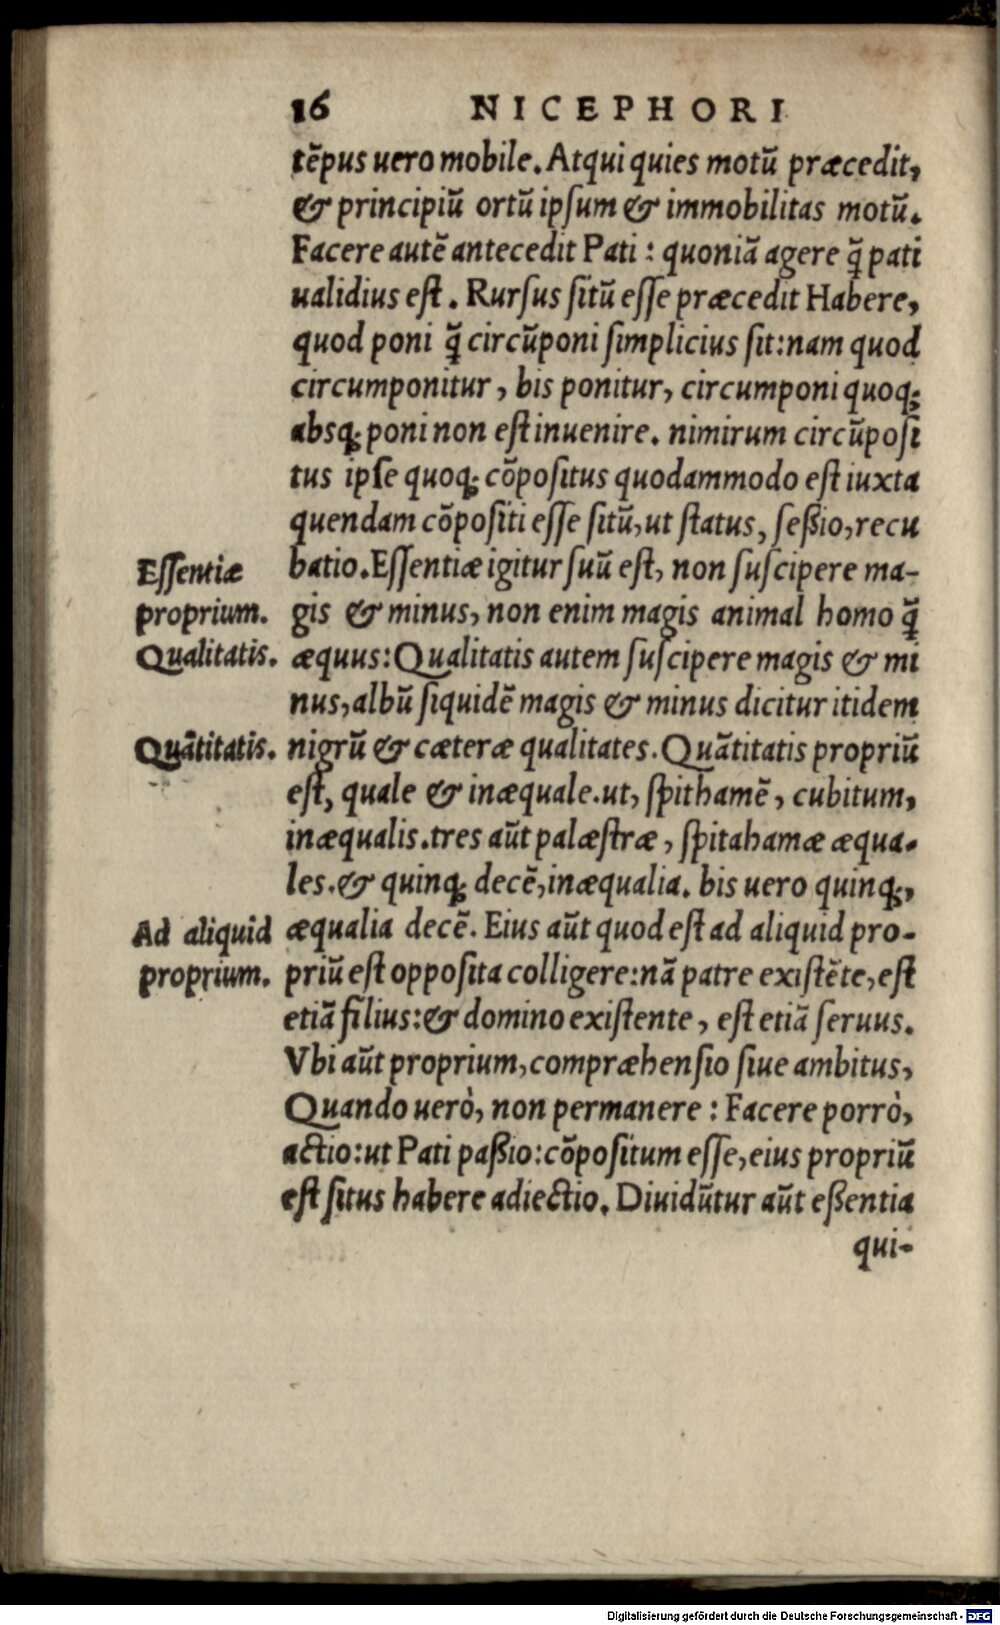 16 NICEPHORI
tẽpus uero mobile. Atqui quies motũ præcedit,
& principiũ ortũ ipſum & immobilitas motũ.
Facere autẽ antecedit Pati: quoniã agere q̃ pati
ualidius eſt. Rurſus ſitũ eſſe præcedit Habere,
quod poni q̃ circũponi ſimplicius ſit: nam quod
circumponitur, bis ponitur, circumponi quoq;
absq; poni non eſt inuenire. nimirum circũpoſi
tus ipſe quoq; cõpoſitus quodammodo eſt iuxta
quendam cõpoſiti eſſe ſitũ, ut ſtatus, ſeßio, recu
Eſſentiæ batio. Eſſentiæ igitur ſuũ eſt, non ſuſcipere ma-
proprium. gis & minus, non enim magis animal homo q̃
Qualitatis. æquus: Qualitatis autem ſuſcipere magis & mi
nus, albũ ſiquidẽ magis & minus dicitur itidem
Quãtitatis. nigrũ & cæteræ qualitates. Quãtitatis propriũ
eſt, quale & inæquale. ut, ſpithamẽ, cubitum,
inæqualis. tres aũt palæſtræ, ſpitahamæ æqua-
les. & quinq; decẽ, inæqualia. bis uero quinq;,
Ad aliquid æqualia decẽ. Eius aũt quod eſt ad aliquid pro-
proprium. priũ eſt oppoſita colligere: nã patre exiſtẽte, eſt
etiã filius: & domino exiſtente, eſt etiã ſeruus.
Vbi aũt proprium, compræhenſio ſiue ambitus,
Quando uerò, non permanere: Facere porrò,
actio: ut Pati paßio: cõpoſitum eſſe, eius propriũ
eſt ſitus habere adiectio. Diuidũtur aũt eßentia
qui-
Digitalisierung gefördert durch die Deutsche Forschungsgemeinschaft - DFG